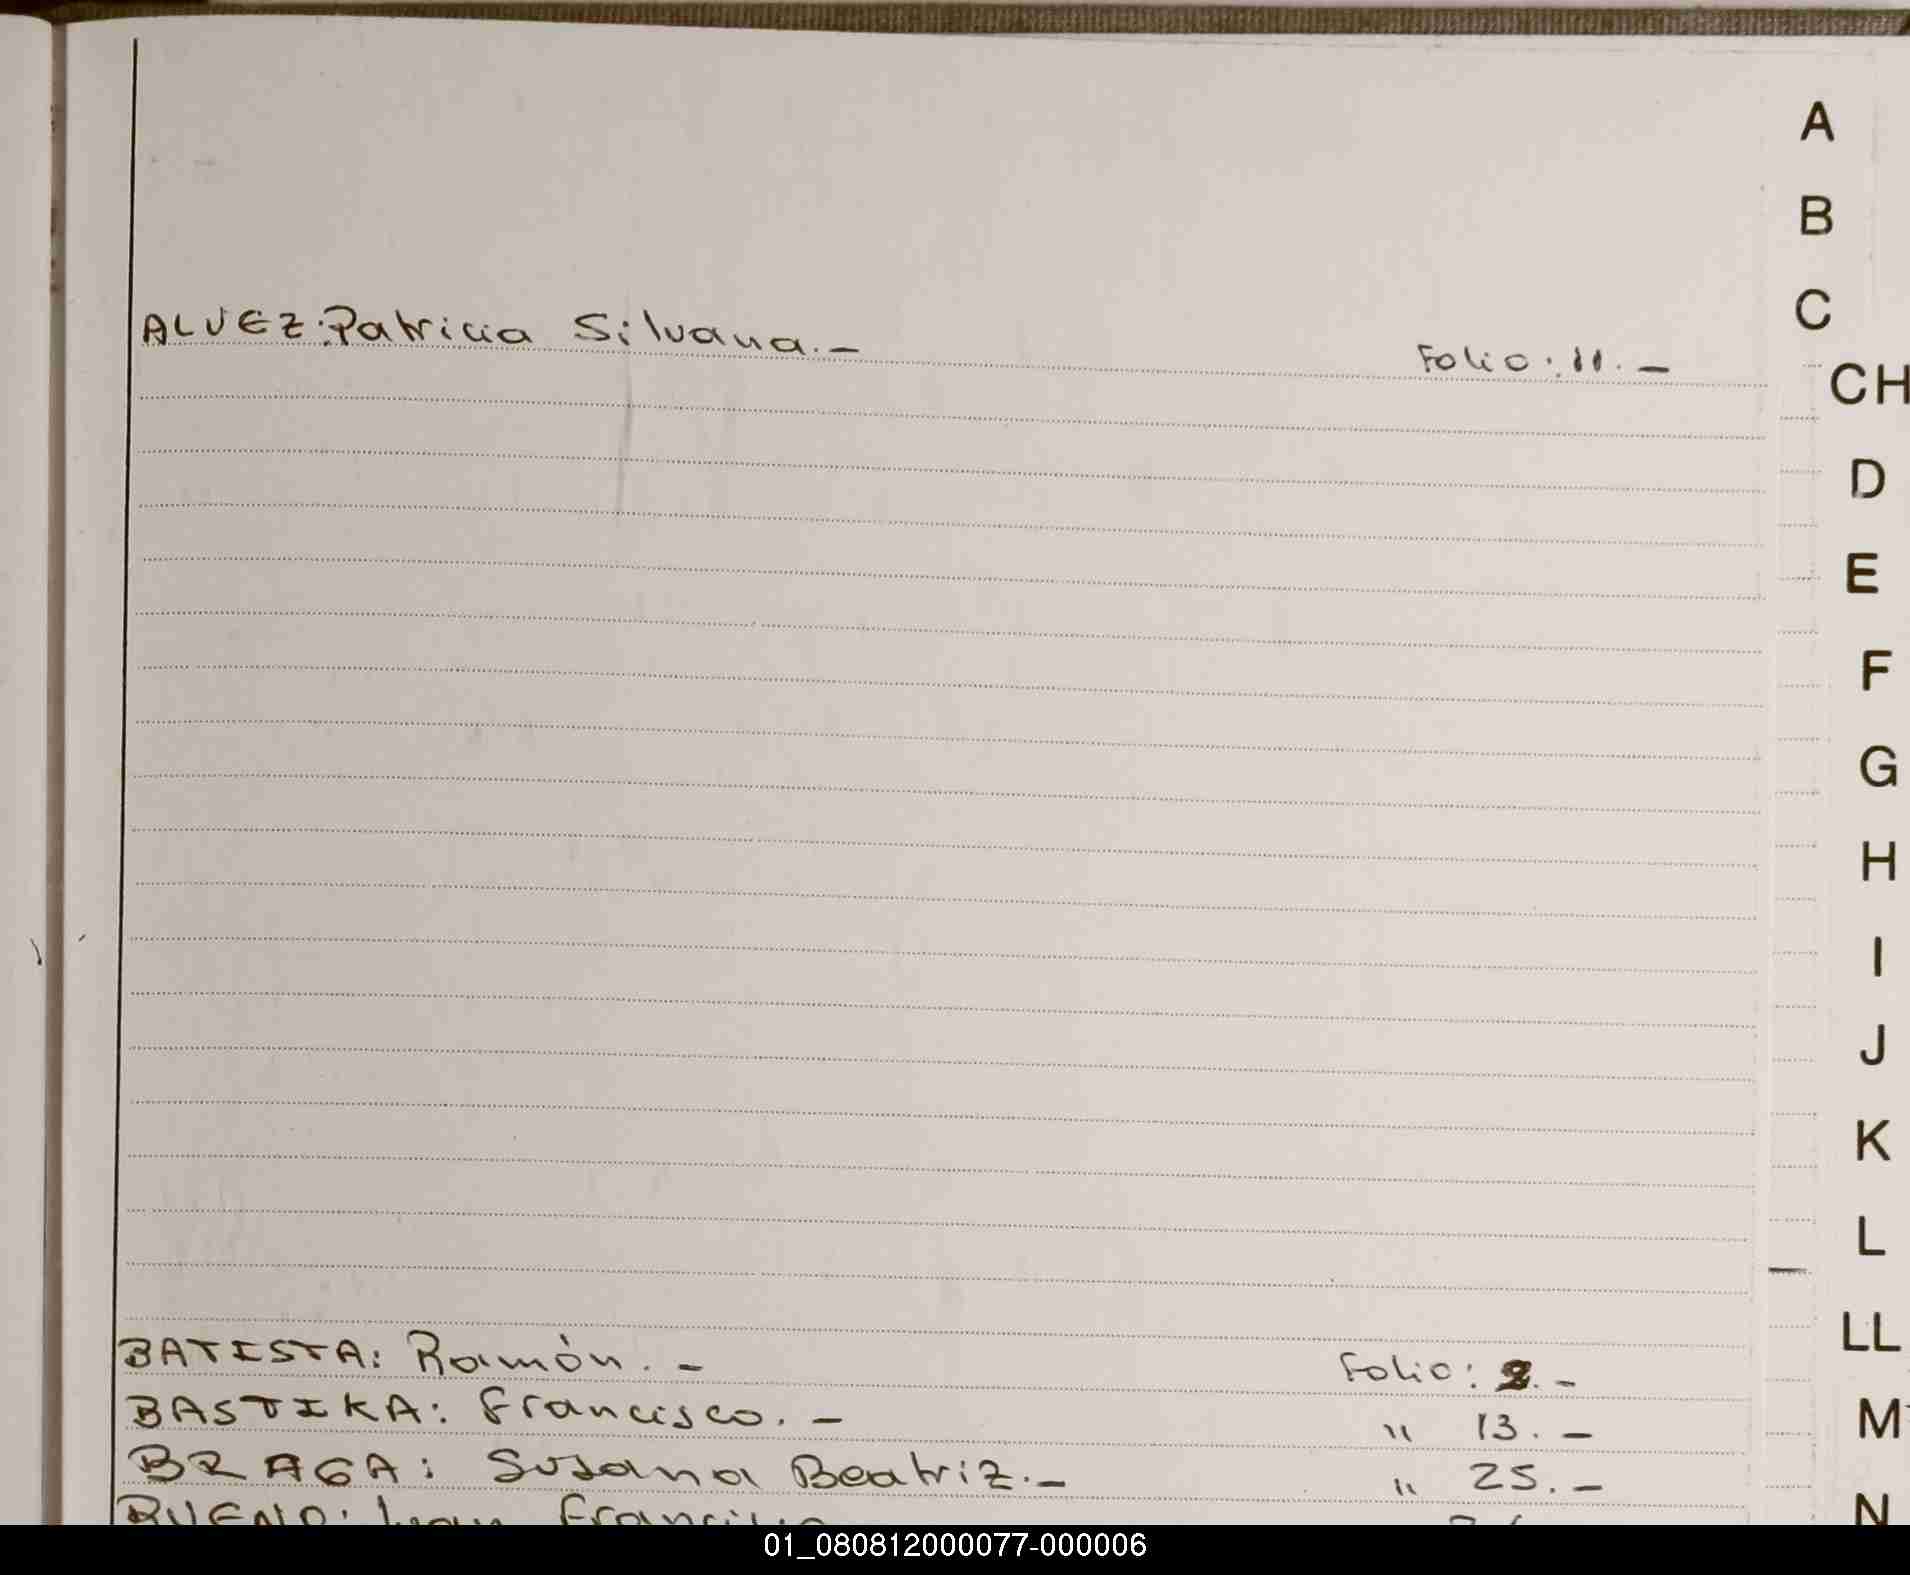 A
B
C
ALVEZ: Patricia Silvana. – Folio: 11. –
CH
D
E
F
G
H
I
J
K
L
LL
BATISTA: Ramón. – Folio: 2. –
BASTIKA: Francisco. – " 13. –
M
BRAGA: Susana Beatriz. – " 25. –
N
BUENO: Juan
01_080812000077-000006